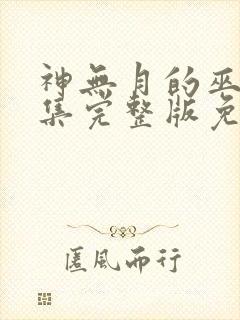 神無月的巫
集完整版免
匿風而行